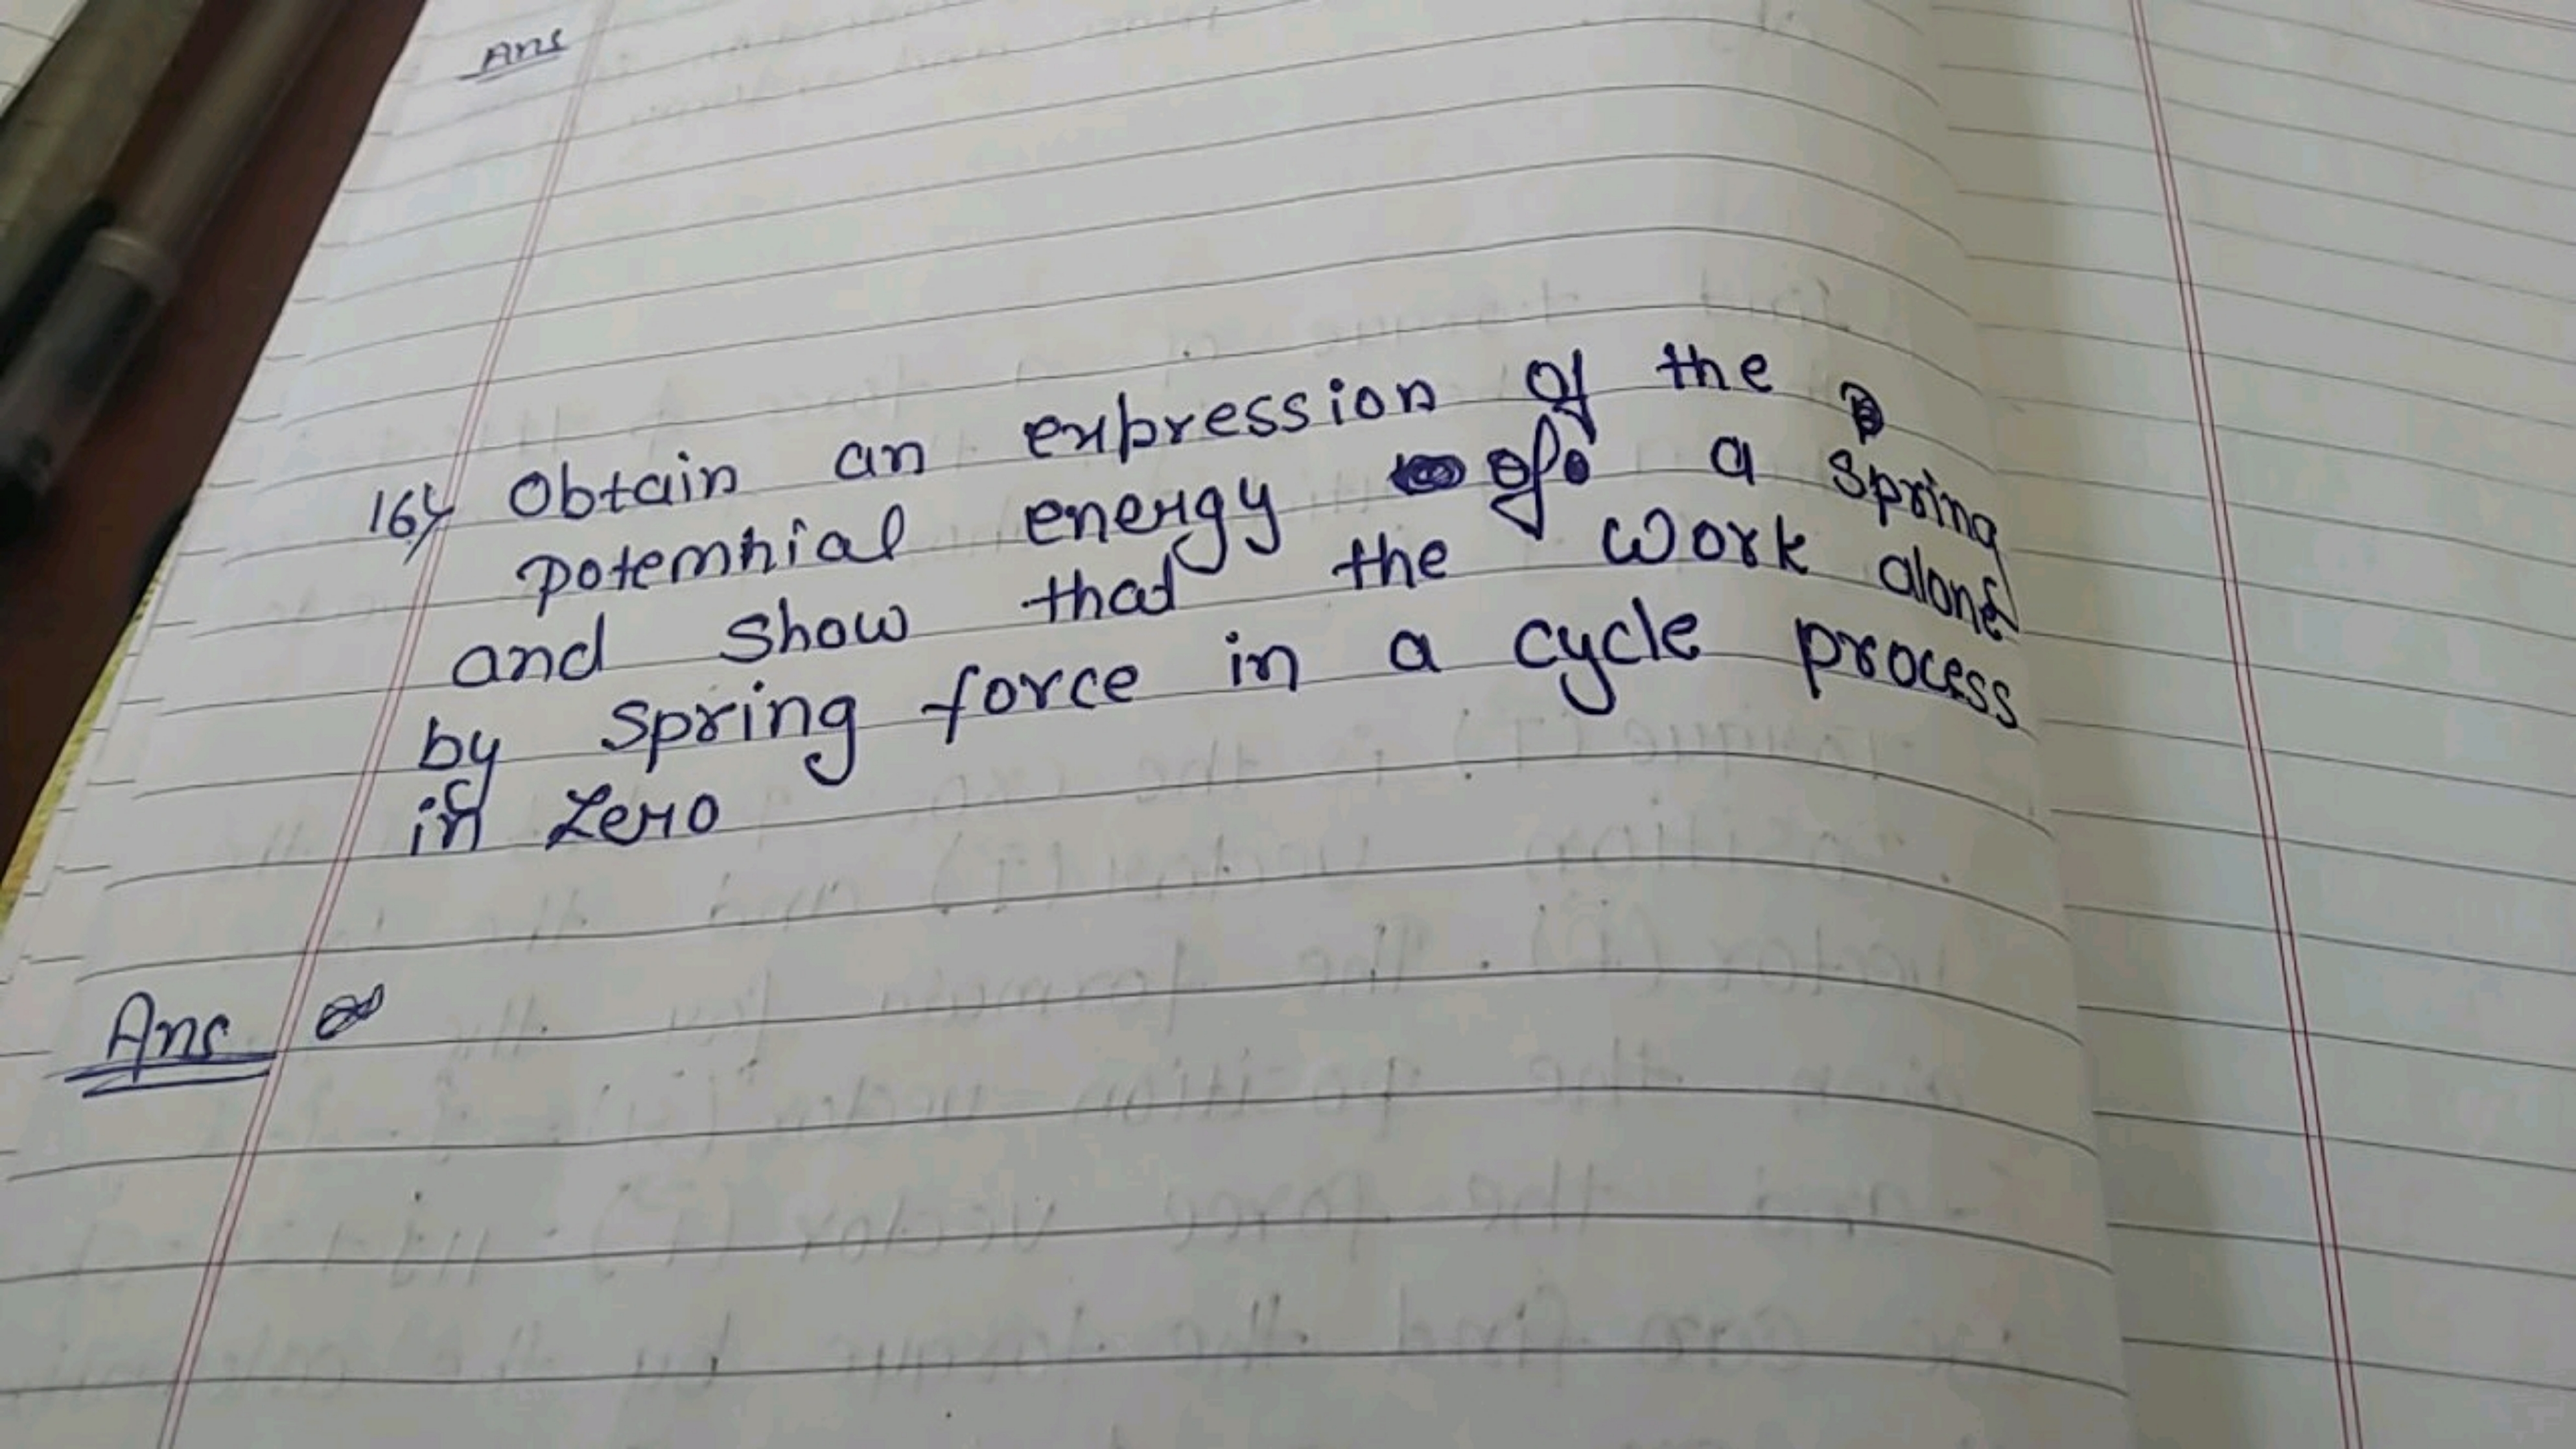 Ans
16) Obtain an expression of the
potemnial energy of a spring
and show that the work alone
by spring force in a cycle process
in zero
Ans